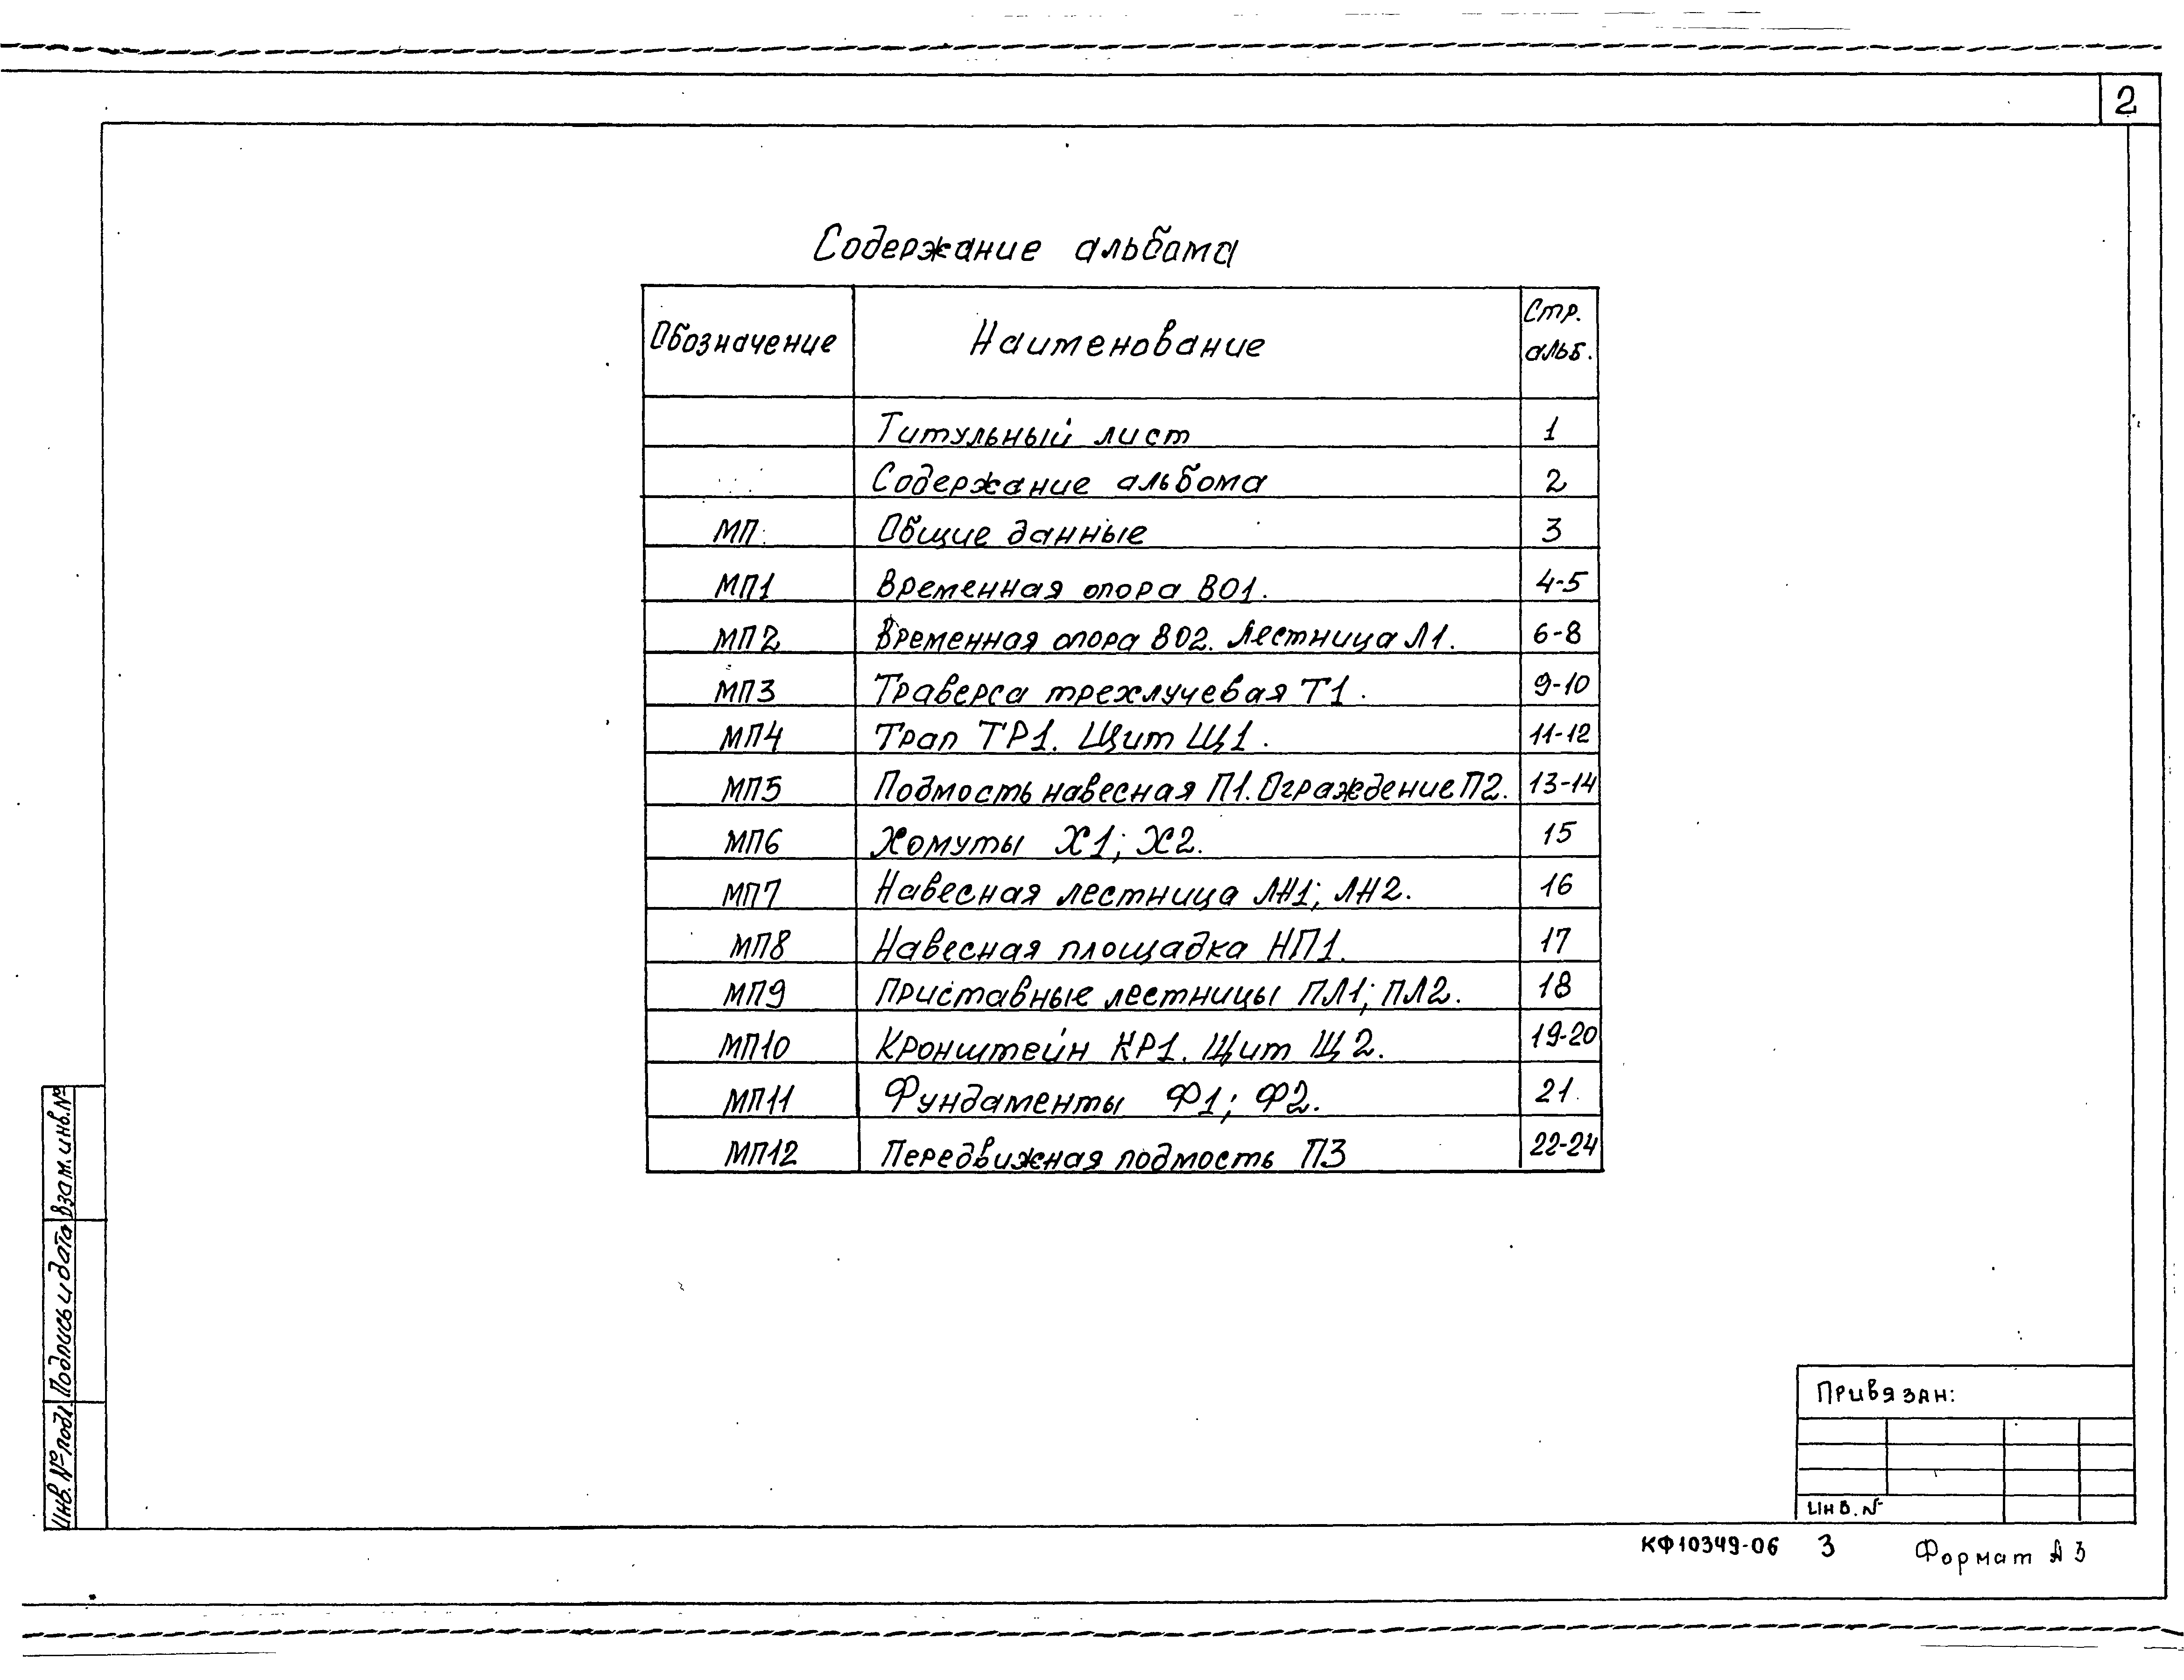 2
Содержание альбома
Обозначение Наименование Стр. альб.
Титульный лист 1
Содержание альбома 2
МП Общие данные 3
МП1 Временная опора ВО1. 4-5
МП2 Временная опора ВО2. Лестница Л1. 6-8
МП3 Траверса трехлучевая Т1. 9-10
МП4 Трап ТР1. Щит Щ1. 11-12
МП5 Подмость навесная П1. Ограждение П2. 13-14
МП6 Хомуты Х1; Х2. 15
МП7 Навесная лестница ЛН1; ЛН2. 16
МП8 Навесная площадка НП1. 17
МП9 Приставные лестницы ПЛ1; ПЛ2. 18
МП10 Кронштейн КР1. Щит Щ2. 19-20
МП11 Фундаменты Ф1; Ф2. 21
МП12 Передвижная подмость П3 22-24
Взам. инв. №
Подпись и дата
Инв. № подл.
Привязан:
Инв. №
КФ10349-06 3 Формат А3